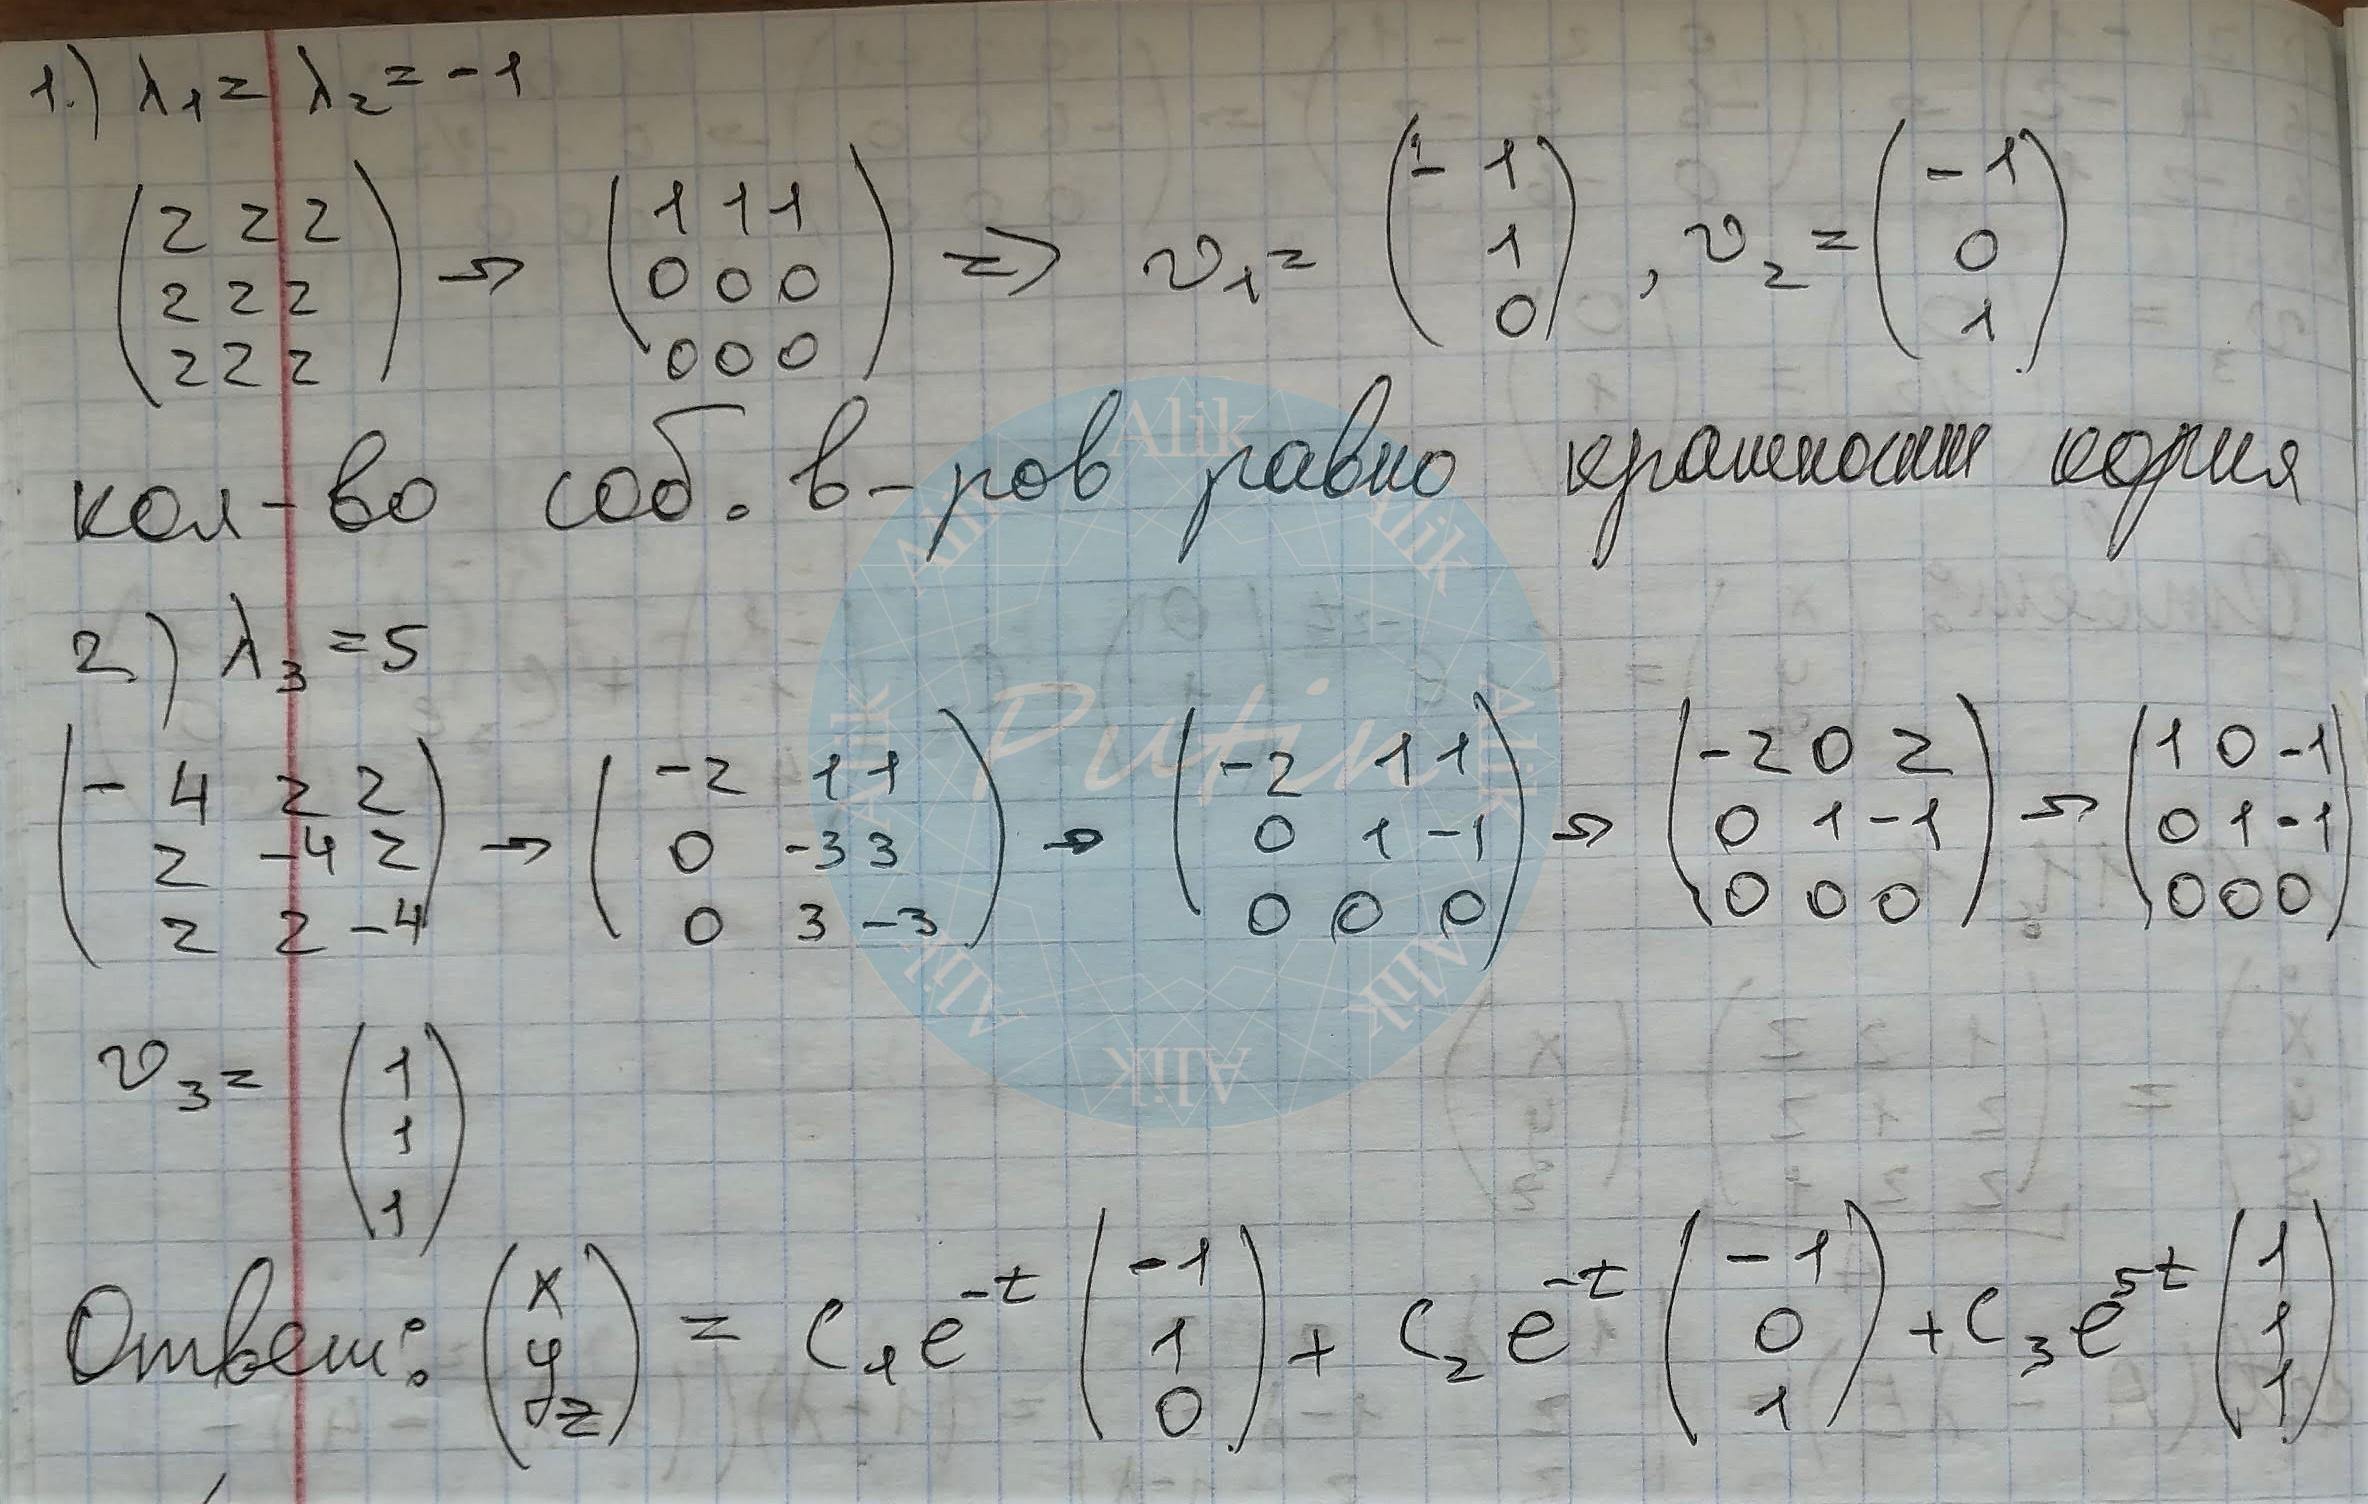 1.) λ₁ = λ₂ = -1
(2 2 2; 2 2 2; 2 2 2) → (1 1 1; 0 0 0; 0 0 0) => v₁ = (-1; 1; 0), v₂ = (-1; 0; 1)
кол-во соб. в-ров равно кратности корня
2.) λ₃ = 5
(-4 2 2; 2 -4 2; 2 2 -4) → (-2 1 1; 0 -3 3; 0 3 -3) → (-2 1 1; 0 1 -1; 0 0 0) → (-2 0 2; 0 1 -1; 0 0 0) → (1 0 -1; 0 1 -1; 0 0 0)
v₃ = (1; 1; 1)
Ответ: (x; y; z) = C₁e^{-t} (-1; 1; 0) + C₂e^{-t} (-1; 0; 1) + C₃e^{5t} (1; 1; 1)
Alik
Alik
Alik
Alik
Alik
Alik
Alik
Alik
Putin